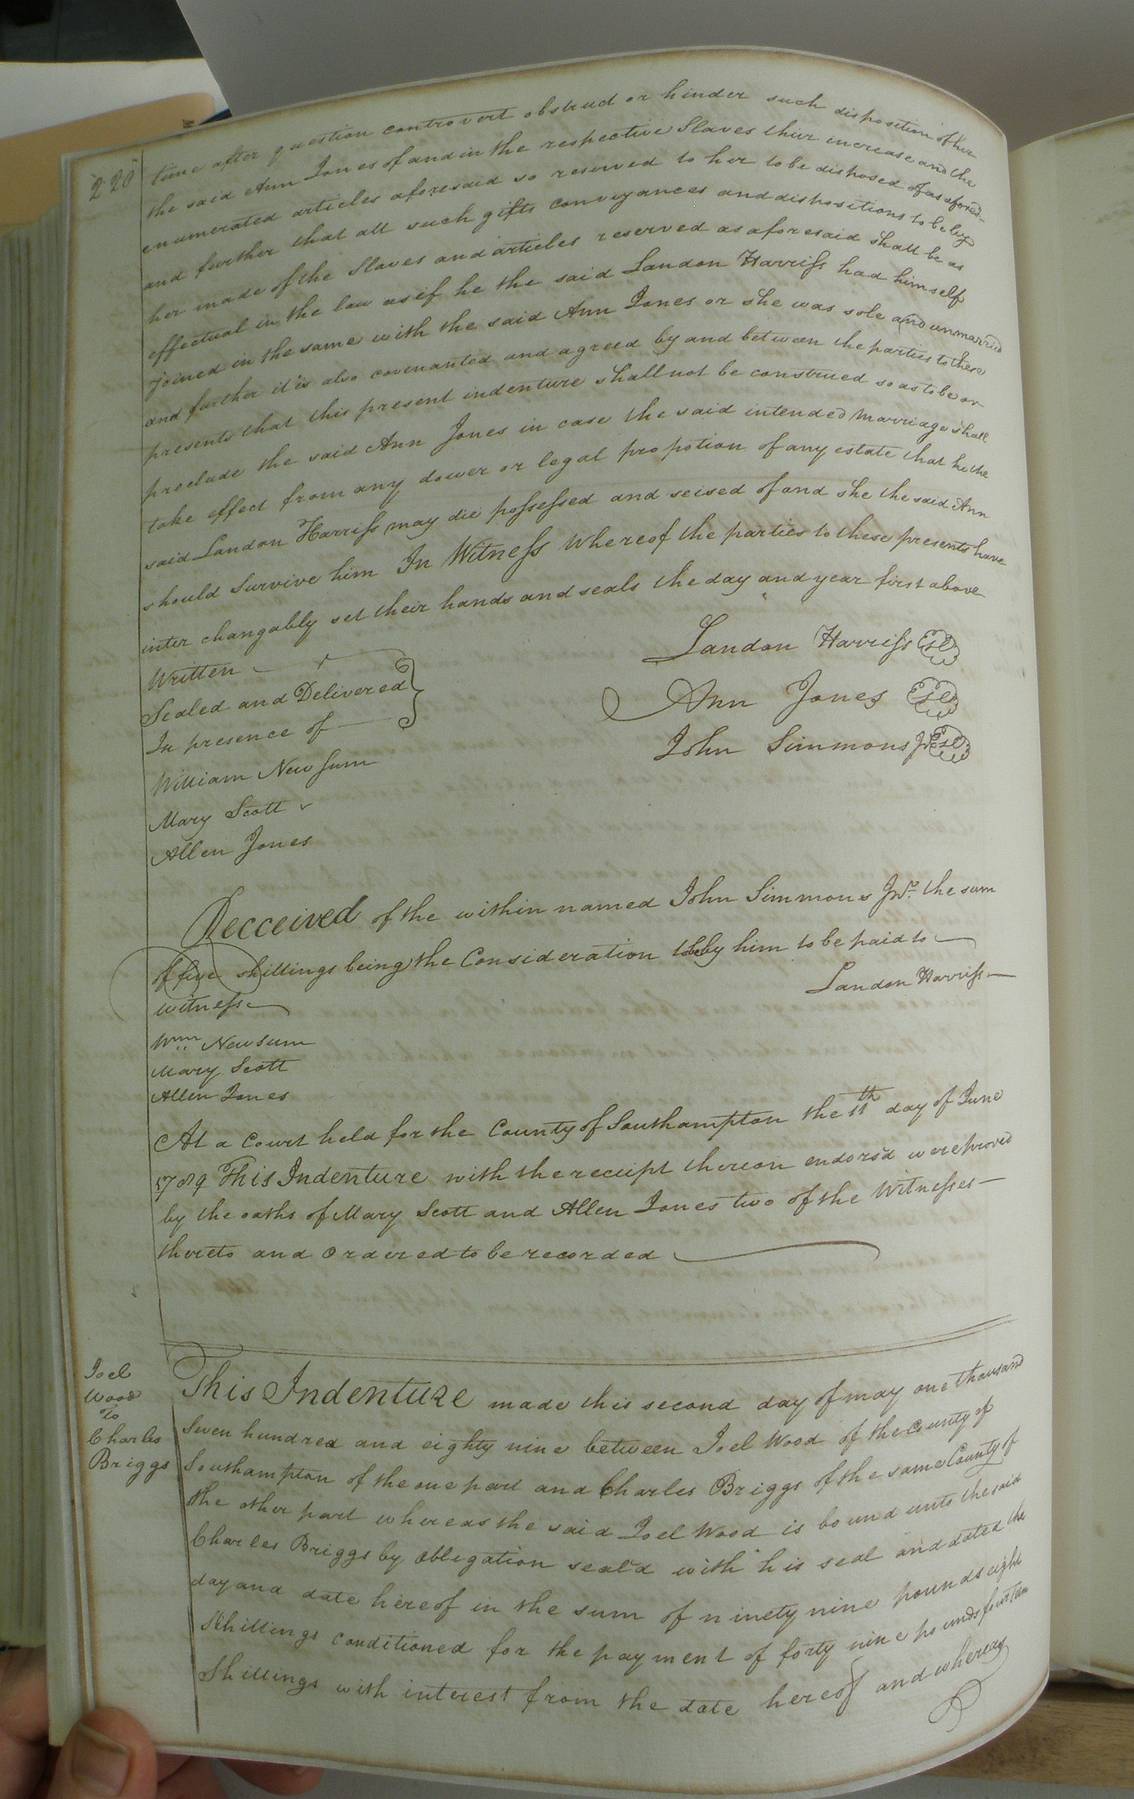 220
time after question controvert obstruct or hinder such disposition of her
the said Ann Jones of and in the respective Slaves their increase and the
enumerated articles aforesaid so reserved to her to be disposed of as afored-
and further that all such gifts conveyances and dispositions to be by
her made of the Slaves and articles reserved as aforesaid shall be as
effectual in the law as if he the said Landon Harriss had himself
joined in the same with the said Ann Jones or she was sole and unmarried
and further it is also covenanted and agreed by and between the parties to these
presents that this present indenture shall not be construed so as to be or
preclude the said Ann Jones in case the said intended Marriage shall
take effect from any dower or legal propotion of any estate that he the
said Landon Harriss may die possessed and seised of and she the said Ann
should Survive him In Witness Whereof the parties to these presents have
inter changably set their hands and seals the day and year first above
Written
Sealed and Delivered
In presence of
William Newsum
Mary Scott
Allen Jones
Landon Harriss
Ann Jones
John Simmons Jr
Recceived of the within named John Simmons Jnr. the sum
of five shillings being the Consideration by him to be paid to
Landon Harriss
witness
Wm Newsum
Mary Scott
Allen Jones
At a Court held for the County of Southampton the 11th day of June
1789 This Indenture with the receipt thereon endorsd were proved
by the oaths of Mary Scott and Allen Jones two of the Witnesses
thereto and Ordered to be recorded
Joel
Wood
To
Charles
Briggs
This Indenture made this second day of may one thousand
Seven hundred and eighty nine between Joel Wood of the County of
Southampton of the one part and Charles Briggs of the same County of
the other part whereas the said Joel Wood is bound unto the said
Charles Briggs by Obligation seald with his seal and dated the
day and date hereof in the sum of ninety nine pounds eight
Shillings conditioned for the payment of forty nine pounds fourteen
Shillings with interest from the date hereof and whereas